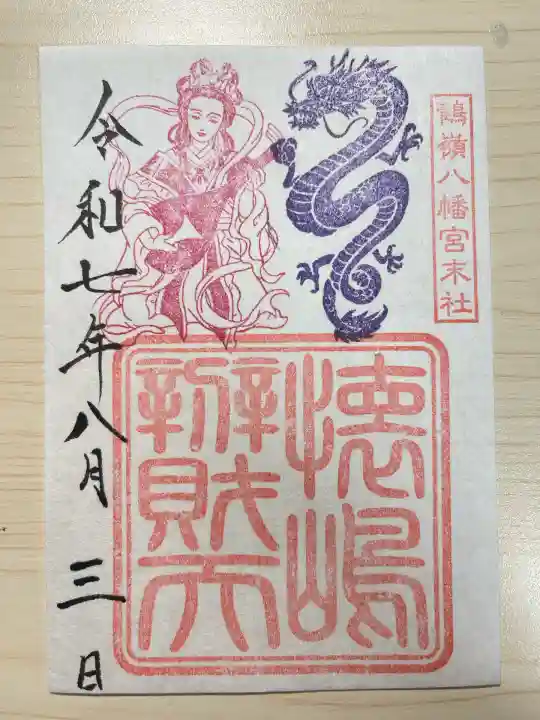 鶴嶺八幡宮末社
懐嶋
辧財天
令和七年八月三日